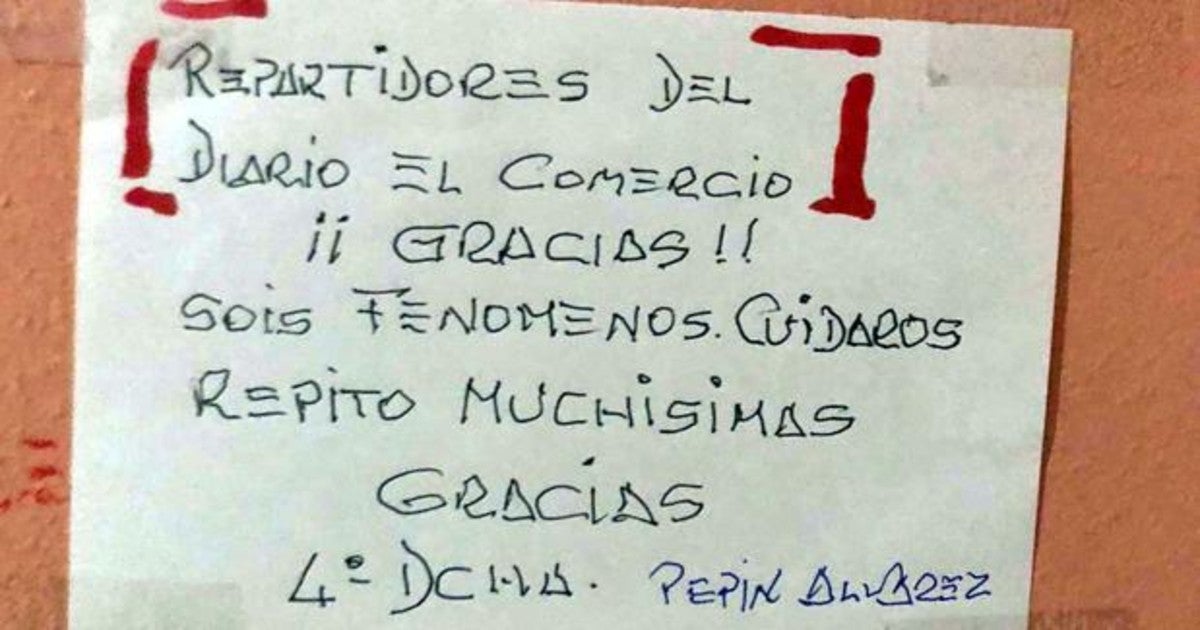 REPARTIDORES DEL
DIARIO EL COMERCIO
¡¡ GRACIAS !!
SOIS FENOMENOS. CUIDAROS
REPITO MUCHISIMAS
GRACIAS
4º DCHA. PEPIN ALVAREZ